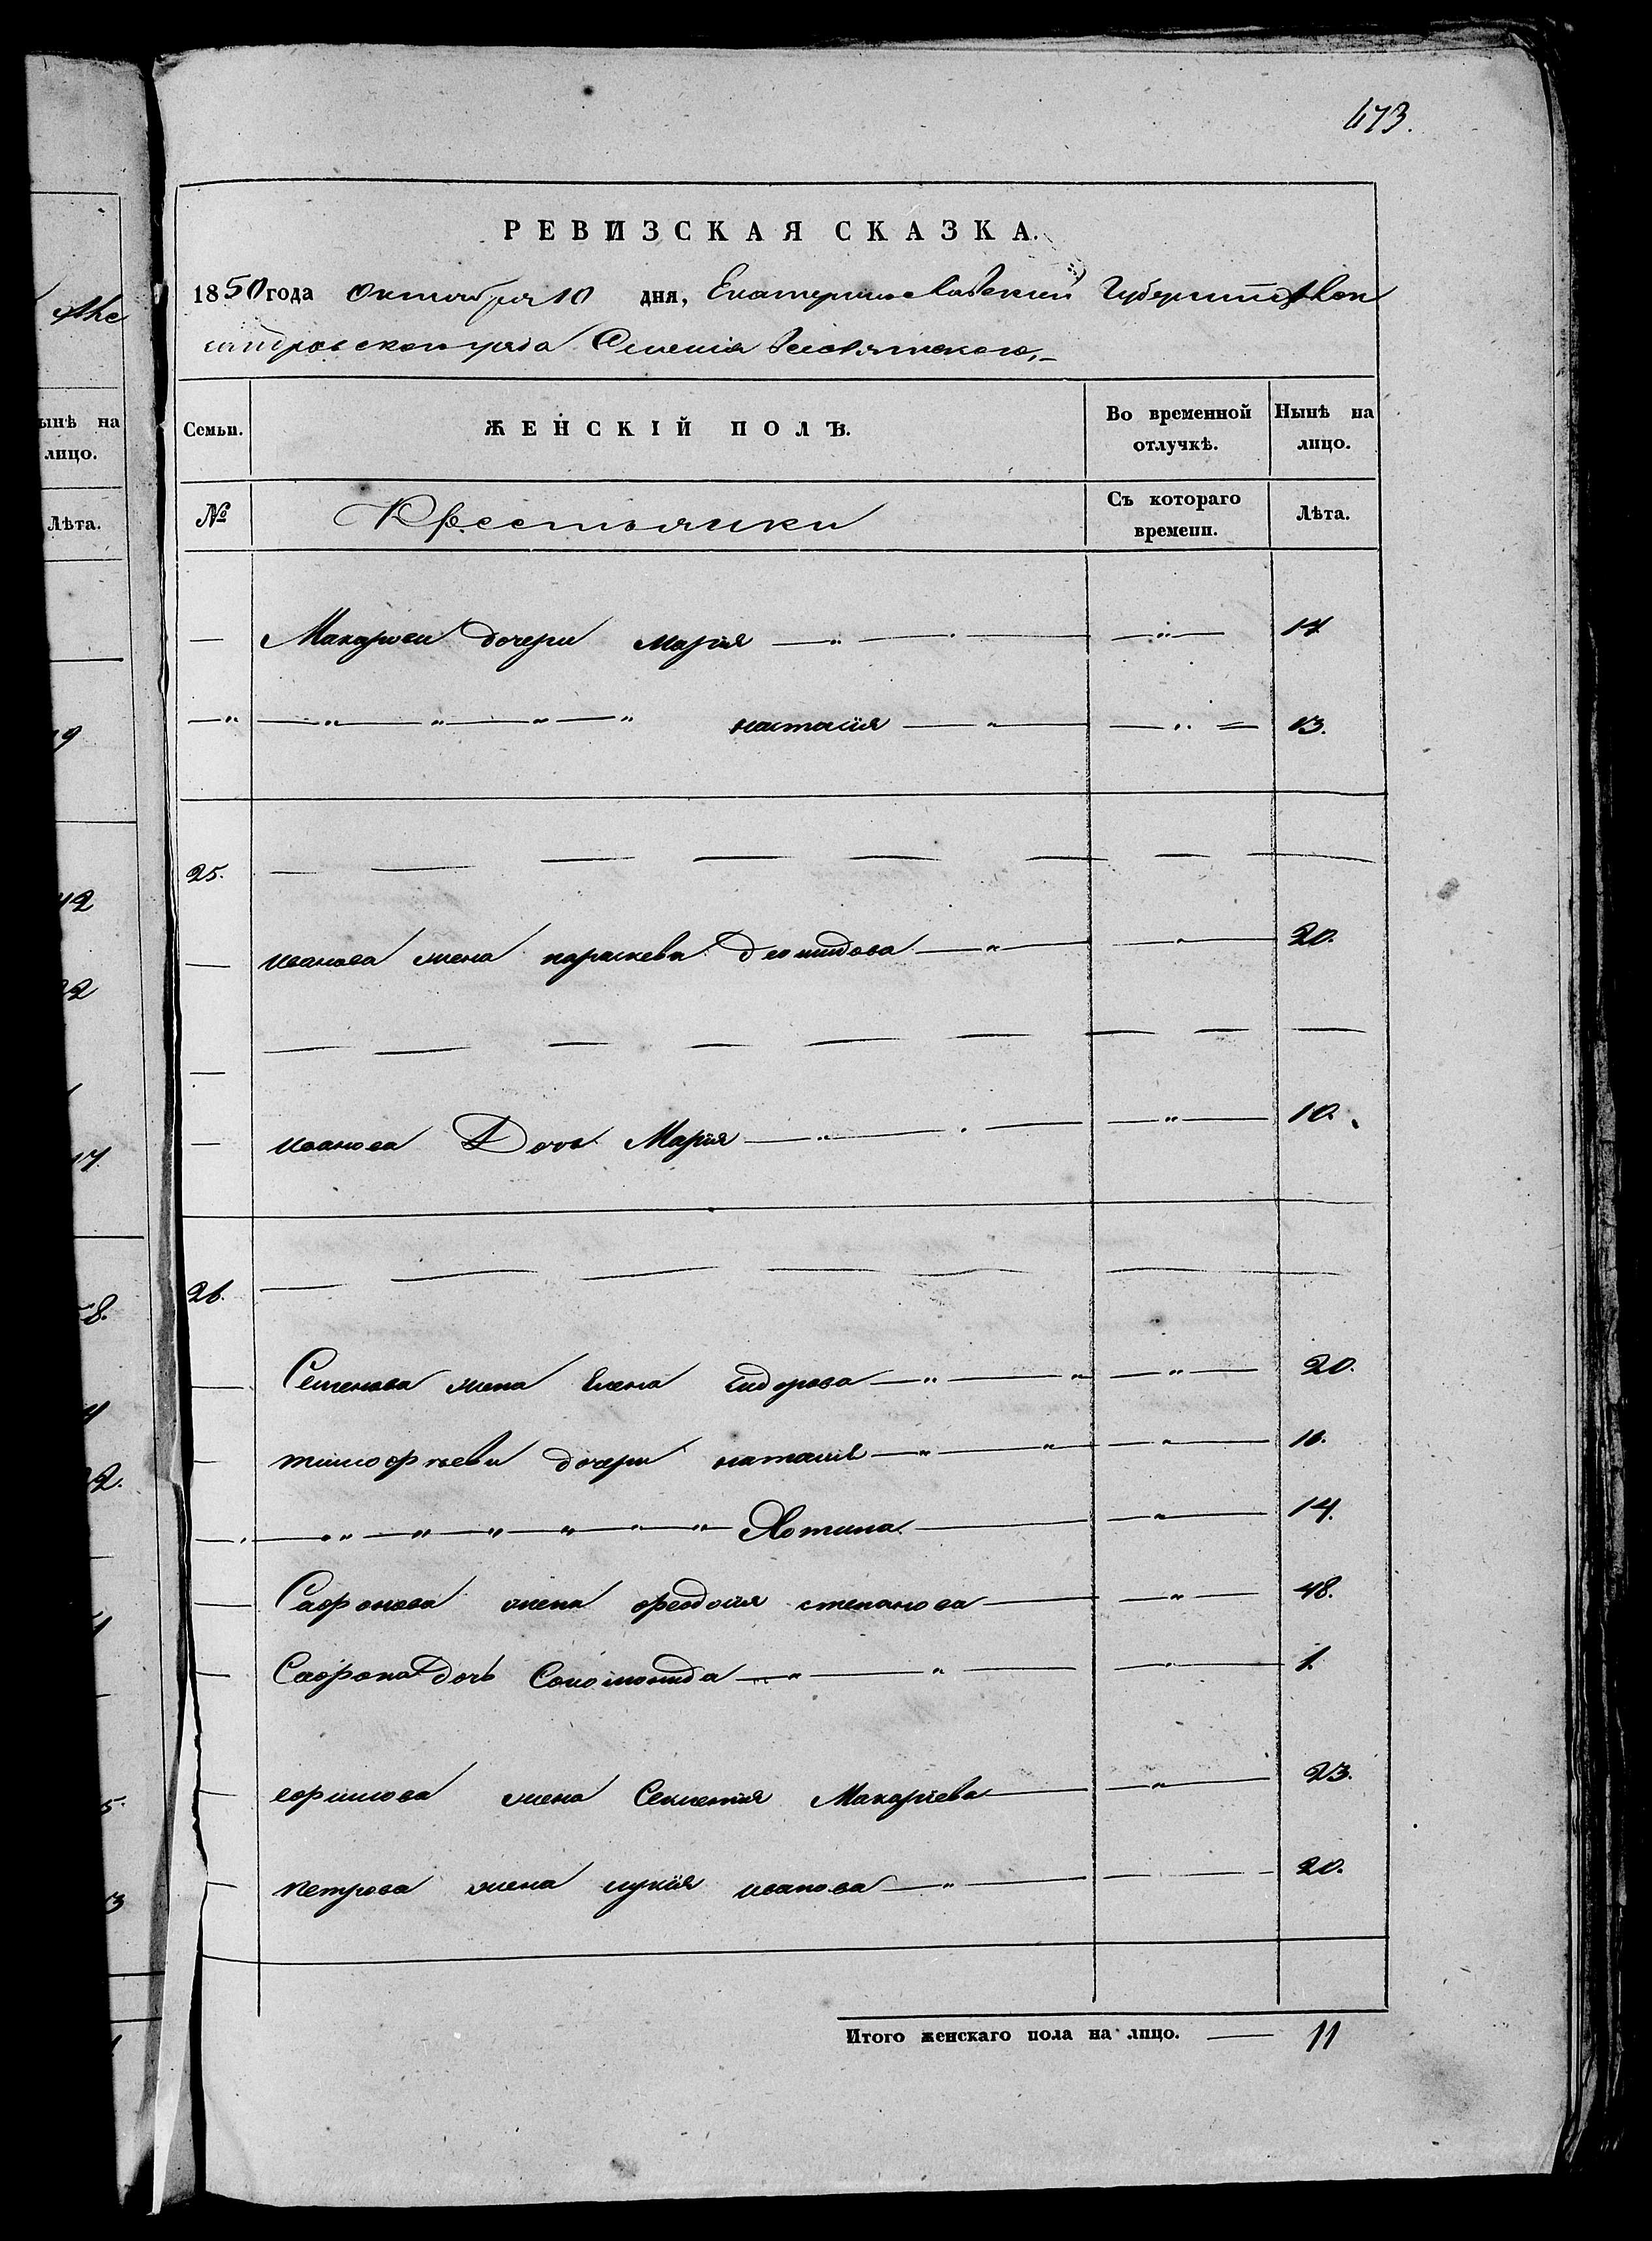 473.
РЕВИЗСКАЯ СКАЗКА.
1850 года Октября 10 дня, Екатеринославской Губерніи Алек
сандровского уезда Селенія
Семьи. ЖЕНСКІЙ ПОЛЪ. Во временной отлучкѣ. Нынѣ на лицо.
№ Крестьянки Съ котораго времени. Лѣта.
— Макаровы дочери Марія — „ — „ 17.
— „ — „ — „ — „ — „ настасія — „ — „ 13.
25. — — — — — — —
— иванова жена параскева Демидова — „ — „ — 20.
— — — — — — — —
— иванова Дочь Марія — „ — „ — 10.
26. — — — — — — —
— Семенова жена Елена сидорова — „ — „ — „ — 20.
— тимофѣевы дочери наталія — „ — „ — „ — 16.
— „ — „ — „ — „ — „ — Хотина — „ — 14.
— Сафонова жена феодосия степанова — „ — 48.
— Сафона дочь Соломонида — „ — „ — „ — 1.
— ефимова жена Секлетия Макаріева — „ — 23.
— петрова жена лукія иванова — „ — 20.
Итого женскаго пола на лицо. — 11
ынѣ на
лицо.
Лѣта.